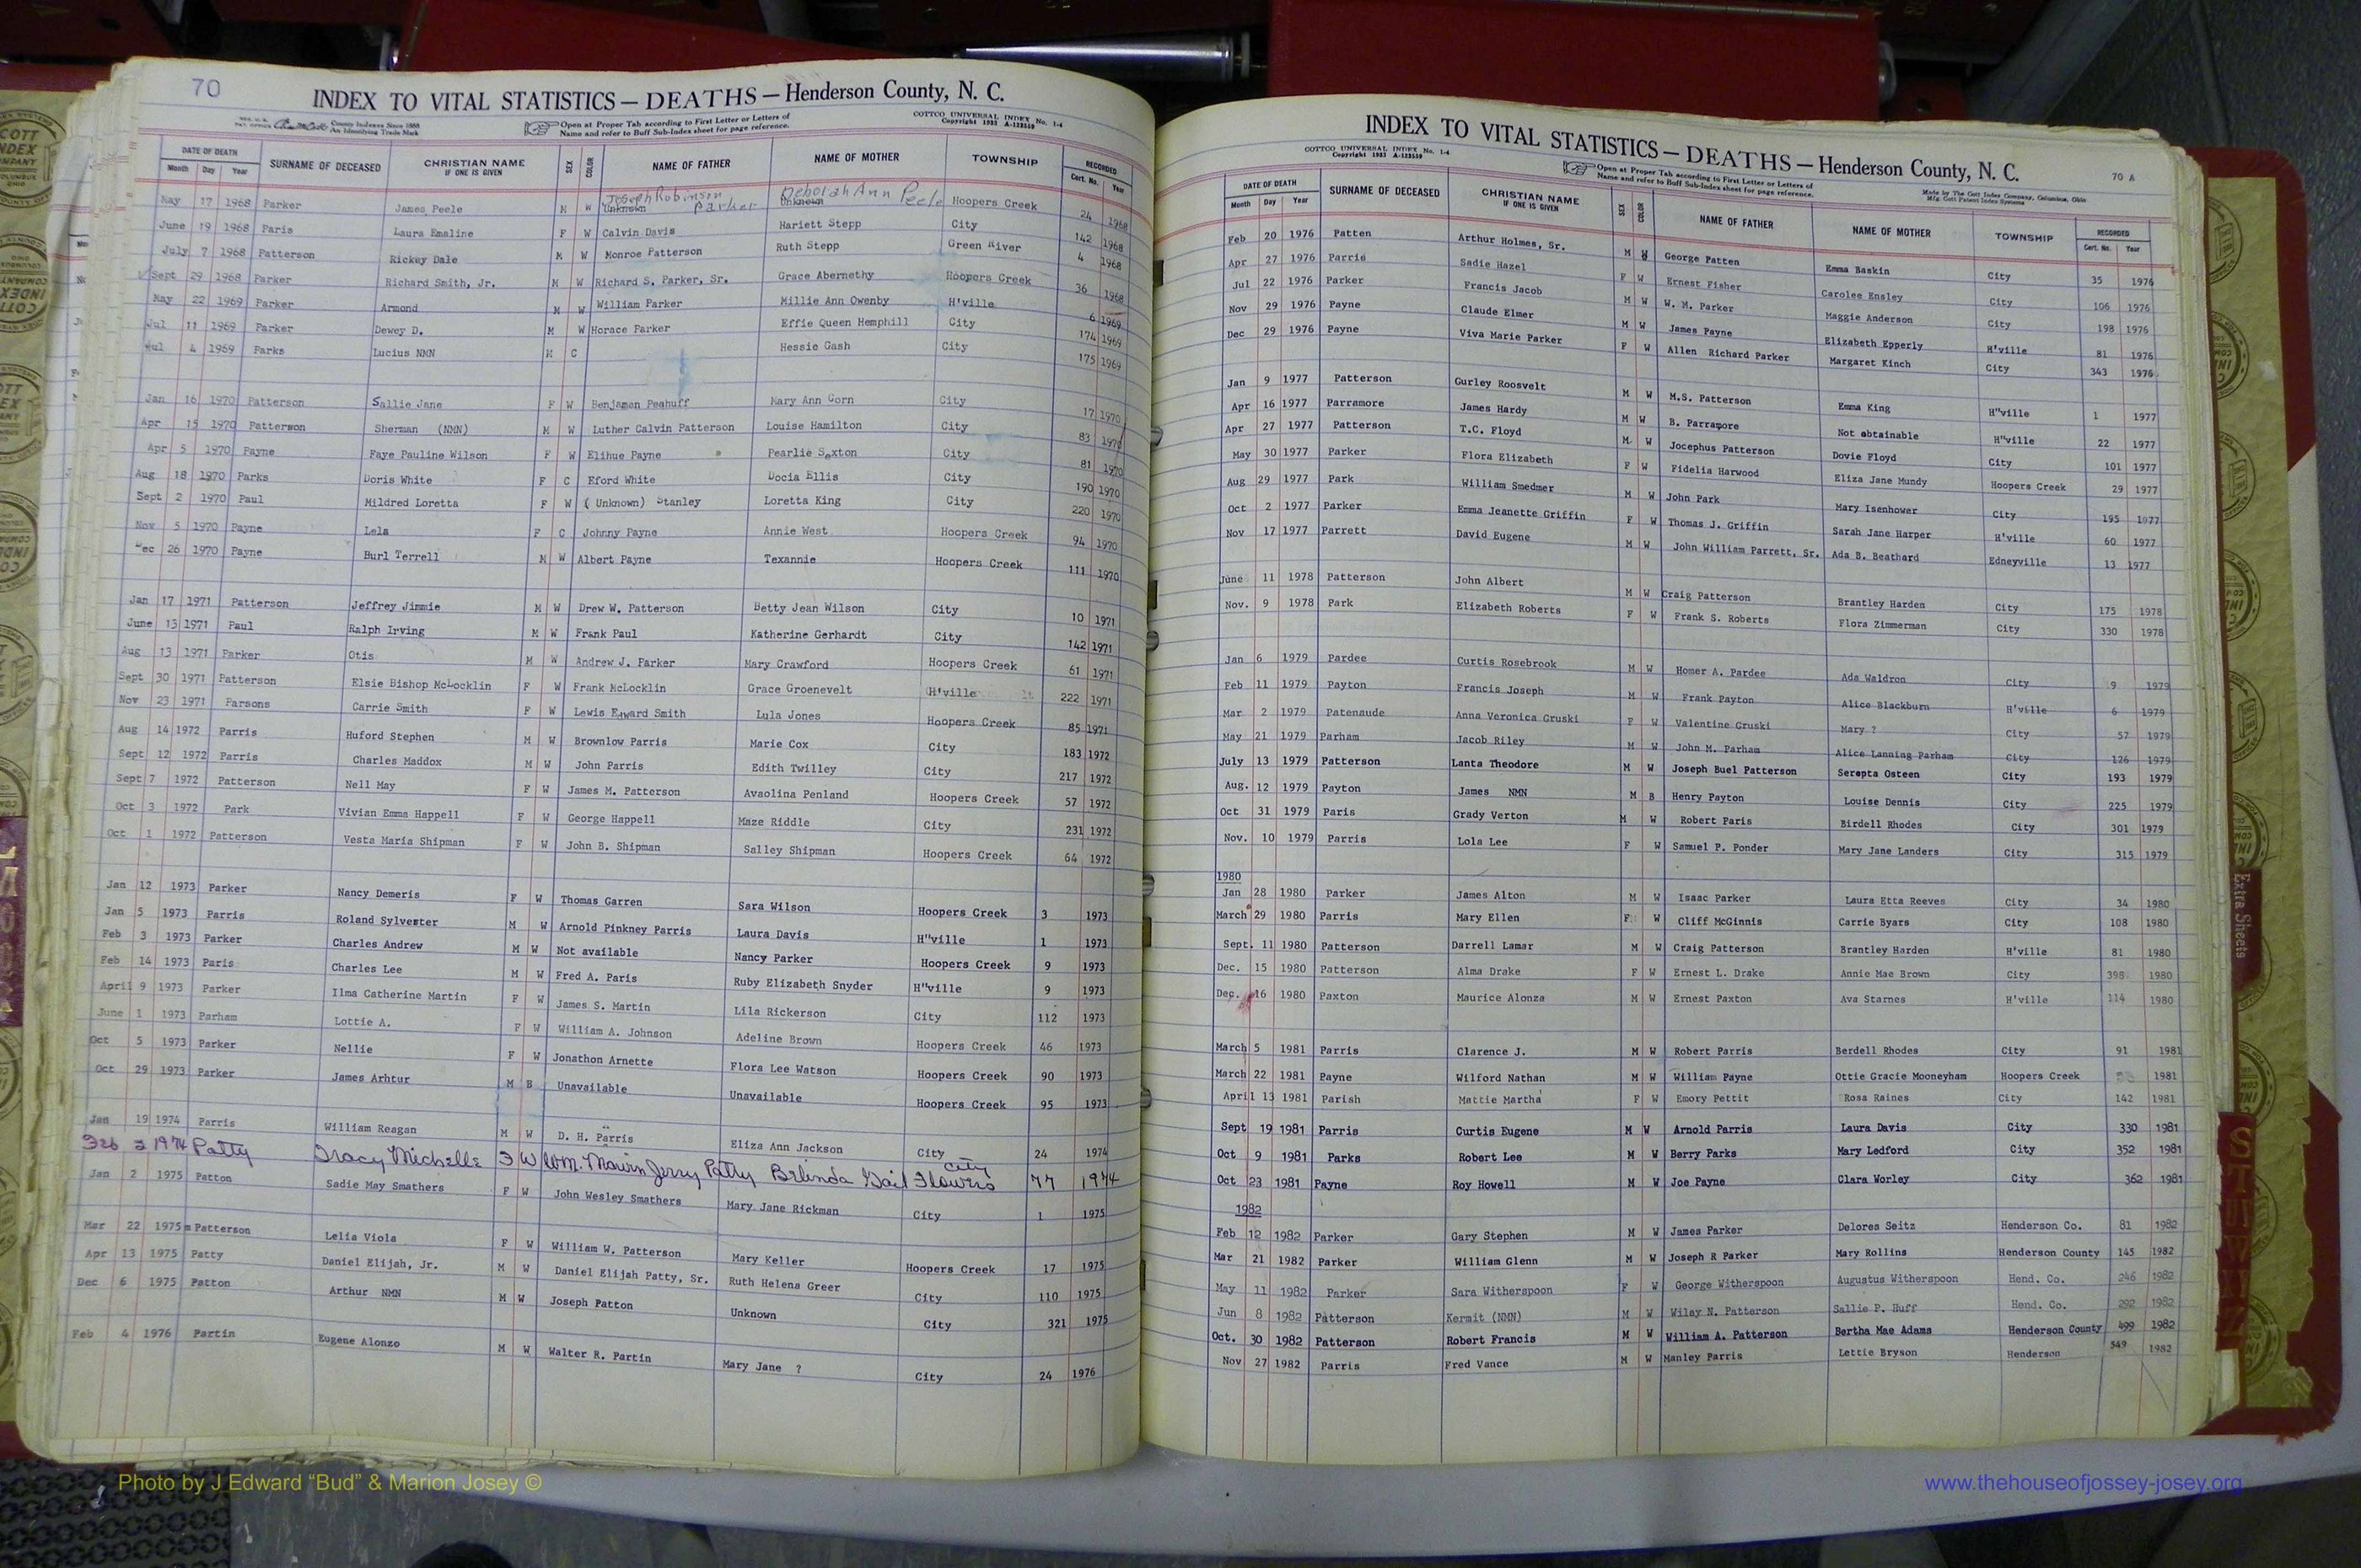 70
INDEX TO VITAL STATISTICS — DEATHS — Henderson County, N. C.
County Indexes Since 1888
An Identifying Trade Mark
Open at Proper Tab according to First Letter or Letters of
Name and refer to Buff Sub-Index sheet for page reference.
COTTCO UNIVERSAL INDEX No. 1-4
Copyright 1933 A-122559
DATE OF DEATH SURNAME OF DECEASED CHRISTIAN NAME IF ONE IS GIVEN SEX COLOR NAME OF FATHER NAME OF MOTHER TOWNSHIP RECORDED
Month Day Year Cert. No. Year
Joseph Robinson Parker Deborah Ann Peele
May 17 1968 Parker James Peele M W Unknown Unknown Hoopers Creek 24 1968
June 19 1968 Paris Laura Emaline F W Calvin Davis Hariett Stepp City 142 1968
July 7 1968 Patterson Rickey Dale M W Monroe Patterson Ruth Stepp Green River 4 1968
Sept 29 1968 Parker Richard Smith, Jr. M W Richard S. Parker, Sr. Grace Abernethy Hoopers Creek 36 1968
May 22 1969 Parker Armond M W William Parker Millie Ann Owenby H'ville 6 1969
Jul 11 1969 Parker Dewey D. M W Horace Parker Effie Queen Hemphill City 174 1969
Jul 4 1969 Parks Lucius NMN M C Hessie Gash City 175 1969
Jan 16 1970 Patterson Sallie Jane F W Benjamen Peahuff Mary Ann Corn City 17 1970
Apr 15 1970 Patterson Sherman (NMN) M W Luther Calvin Patterson Louise Hamilton City 83 1970
Apr 5 1970 Payne Faye Pauline Wilson F W Elihue Payne Pearlie Sexton City 81 1970
Aug 18 1970 Parks Doris White F C Eford White Docia Ellis City 190 1970
Sept 2 1970 Paul Mildred Loretta F W ( Unknown) Stanley Loretta King City 220 1970
Nov 5 1970 Payne Lela F C Johnny Payne Annie West Hoopers Creek 94 1970
Dec 26 1970 Payne Burl Terrell M W Albert Payne Texannie Hoopers Creek 111 1970
Jan 17 1971 Patterson Jeffrey Jimmie M W Drew W. Patterson Betty Jean Wilson City 10 1971
June 13 1971 Paul Ralph Irving M W Frank Paul Katherine Gerhardt City 142 1971
Aug 13 1971 Parker Otis M W Andrew J. Parker Mary Crawford Hoopers Creek 61 1971
Sept 30 1971 Patterson Elsie Bishop McLocklin F W Frank McLocklin Grace Groenevelt H'ville 222 1971
Nov 23 1971 Parsons Carrie Smith F W Lewis Edward Smith Lula Jones Hoopers Creek 85 1971
Aug 14 1972 Parris Huford Stephen M W Brownlow Parris Marie Cox City 183 1972
Sept 12 1972 Parris Charles Maddox M W John Parris Edith Twilley City 217 1972
Sept 7 1972 Patterson Nell May F W James M. Patterson Avaolina Penland Hoopers Creek 57 1972
Oct 3 1972 Park Vivian Emma Happell F W George Happell Maze Riddle City 231 1972
Oct 1 1972 Patterson Vesta Maria Shipman F W John B. Shipman Salley Shipman Hoopers Creek 64 1972
Jan 12 1973 Parker Nancy Demeris F W Thomas Garren Sara Wilson Hoopers Creek 3 1973
Jan 5 1973 Parris Roland Sylvester M W Arnold Pinkney Parris Laura Davis H"ville 1 1973
Feb 3 1973 Parker Charles Andrew M W Not available Nancy Parker Hoopers Creek 9 1973
Feb 14 1973 Paris Charles Lee M W Fred A. Paris Ruby Elizabeth Snyder H"ville 9 1973
April 9 1973 Parker Ilma Catherine Martin F W James S. Martin Lila Rickerson City 112 1973
June 1 1973 Parham Lottie A. F W William A. Johnson Adeline Brown Hoopers Creek 46 1973
Oct 5 1973 Parker Nellie F W Jonathon Arnette Flora Lee Watson Hoopers Creek 90 1973
Oct 29 1973 Parker James Arhtur M B Unavailable Unavailable Hoopers Creek 95 1973
Jan 19 1974 Parris William Reagan M W D. H. Parris Eliza Ann Jackson City 24 1974
Feb 2 1974 Patty Tracy Michelle F W Wm. Marvin Jerry Patty Belinda Gail Flowers City 77 1974
Jan 2 1975 Patton Sadie May Smathers F W John Wesley Smathers Mary Jane Rickman City 1 1975
Mar 22 1975 Patterson Lelia Viola F W William W. Patterson Mary Keller Hoopers Creek 17 1975
Apr 13 1975 Patty Daniel Elijah, Jr. M W Daniel Elijah Patty, Sr. Ruth Helena Greer City 110 1975
Dec 6 1975 Patton Arthur NMN M W Joseph Patton Unknown City 321 1975
Feb 4 1976 Partin Eugene Alonzo M W Walter R. Partin Mary Jane ? City 24 1976
INDEX TO VITAL STATISTICS — DEATHS — Henderson County, N. C.
COTTCO UNIVERSAL INDEX No. 1-4
Copyright 1933 A-122559
Open at Proper Tab according to First Letter or Letters of
Name and refer to Buff Sub-Index sheet for page reference.
Made by The Cott Index Company, Columbus, Ohio
Mfg. Cott Patent Index Systems
70 A
DATE OF DEATH SURNAME OF DECEASED CHRISTIAN NAME IF ONE IS GIVEN SEX COLOR NAME OF FATHER NAME OF MOTHER TOWNSHIP RECORDED
Month Day Year Cert. No. Year
Feb 20 1976 Patten Arthur Holmes, Sr. M W George Patten Emma Baskin City 35 1976
Apr 27 1976 Parris Sadie Hazel F W Ernest Fisher Carolee Ensley City 106 1976
Jul 22 1976 Parker Francis Jacob M W W. M. Parker Maggie Anderson City 198 1976
Nov 29 1976 Payne Claude Elmer M W James Payne Elizabeth Epperly H'ville 81 1976
Dec 29 1976 Payne Viva Marie Parker F W Allen Richard Parker Margaret Kinch City 343 1976
Jan 9 1977 Patterson Gurley Roosvelt M W M.S. Patterson Emma King H"ville 1 1977
Apr 16 1977 Parramore James Hardy M W B. Parramore Not obtainable H"ville 22 1977
Apr 27 1977 Patterson T.C. Floyd M W Jocephus Patterson Dovie Floyd City 101 1977
May 30 1977 Parker Flora Elizabeth F W Fidelia Harwood Eliza Jane Mundy Hoopers Creek 29 1977
Aug 29 1977 Park William Smedmer M W John Park Mary Isenhower City 195 1977
Oct 2 1977 Parker Emma Jeanette Griffin F W Thomas J. Griffin Sarah Jane Harper H'ville 60 1977
Nov 17 1977 Parrett David Eugene M W John William Parrett, Sr. Ada B. Beathard Edneyville 13 1977
June 11 1978 Patterson John Albert M W Craig Patterson Brantley Harden City 175 1978
Nov. 9 1978 Park Elizabeth Roberts F W Frank S. Roberts Flora Zimmerman City 330 1978
Jan 6 1979 Pardee Curtis Rosebrook M W Homer A. Pardee Ada Waldron City 9 1979
Feb 11 1979 Payton Francis Joseph M W Frank Payton Alice Blackburn H'ville 6 1979
Mar 2 1979 Patenaude Anna Veronica Gruski F W Valentine Gruski Mary ? City 57 1979
May 21 1979 Parham Jacob Riley M W John M. Parham Alice Lanning Parham City 126 1979
July 13 1979 Patterson Lanta Theodore M W Joseph Buel Patterson Serepta Osteen City 193 1979
Aug. 12 1979 Payton James NMN M B Henry Payton Louise Dennis City 225 1979
Oct 31 1979 Paris Grady Verton M W Robert Paris Birdell Rhodes City 301 1979
Nov. 10 1979 Parris Lola Lee F W Samuel P. Ponder Mary Jane Landers City 315 1979
1980
Jan 28 1980 Parker James Alton M W Isaac Parker Laura Etta Reeves City 34 1980
March 29 1980 Parris Mary Ellen F W Cliff McGinnis Carrie Byars City 108 1980
Sept. 11 1980 Patterson Darrell Lamar M W Craig Patterson Brantley Harden H'ville 81 1980
Dec. 15 1980 Patterson Alma Drake F W Ernest L. Drake Annie Mae Brown City 398 1980
Dec. 16 1980 Paxton Maurice Alonza M W Ernest Paxton Ava Starnes H'ville 114 1980
March 5 1981 Parris Clarence J. M W Robert Parris Berdell Rhodes City 91 1981
March 22 1981 Payne Wilford Nathan M W William Payne Ottie Gracie Mooneyham Hoopers Creek 1981
April 13 1981 Parish Mattie Martha F W Emory Pettit Rosa Raines City 142 1981
Sept 19 1981 Parris Curtis Eugene M W Arnold Parris Laura Davis City 330 1981
Oct 9 1981 Parks Robert Lee M W Berry Parks Mary Ledford City 352 1981
Oct 23 1981 Payne Roy Howell M W Joe Payne Clara Worley City 362 1981
1982
Feb 12 1982 Parker Gary Stephen M W James Parker Delores Seitz Henderson Co. 81 1982
Mar 21 1982 Parker William Glenn M W Joseph R Parker Mary Rollins Henderson County 145 1982
May 11 1982 Parker Sara Witherspoon F W George Witherspoon Augustus Witherspoon Hend. Co. 246 1982
Jun 8 1982 Patterson Kermit (NMN) M W Wiley N. Patterson Sallie P. Huff Hend. Co. 292 1982
Oct. 30 1982 Patterson Robert Francis M W William A. Patterson Bertha Mae Adams Henderson County 499 1982
Nov 27 1982 Parris Fred Vance M W Manley Parris Lettie Bryson Henderson 549 1982
Extra Sheets
Photo by J Edward “Bud” & Marion Josey ©
www.thehouseofjossey-josey.org